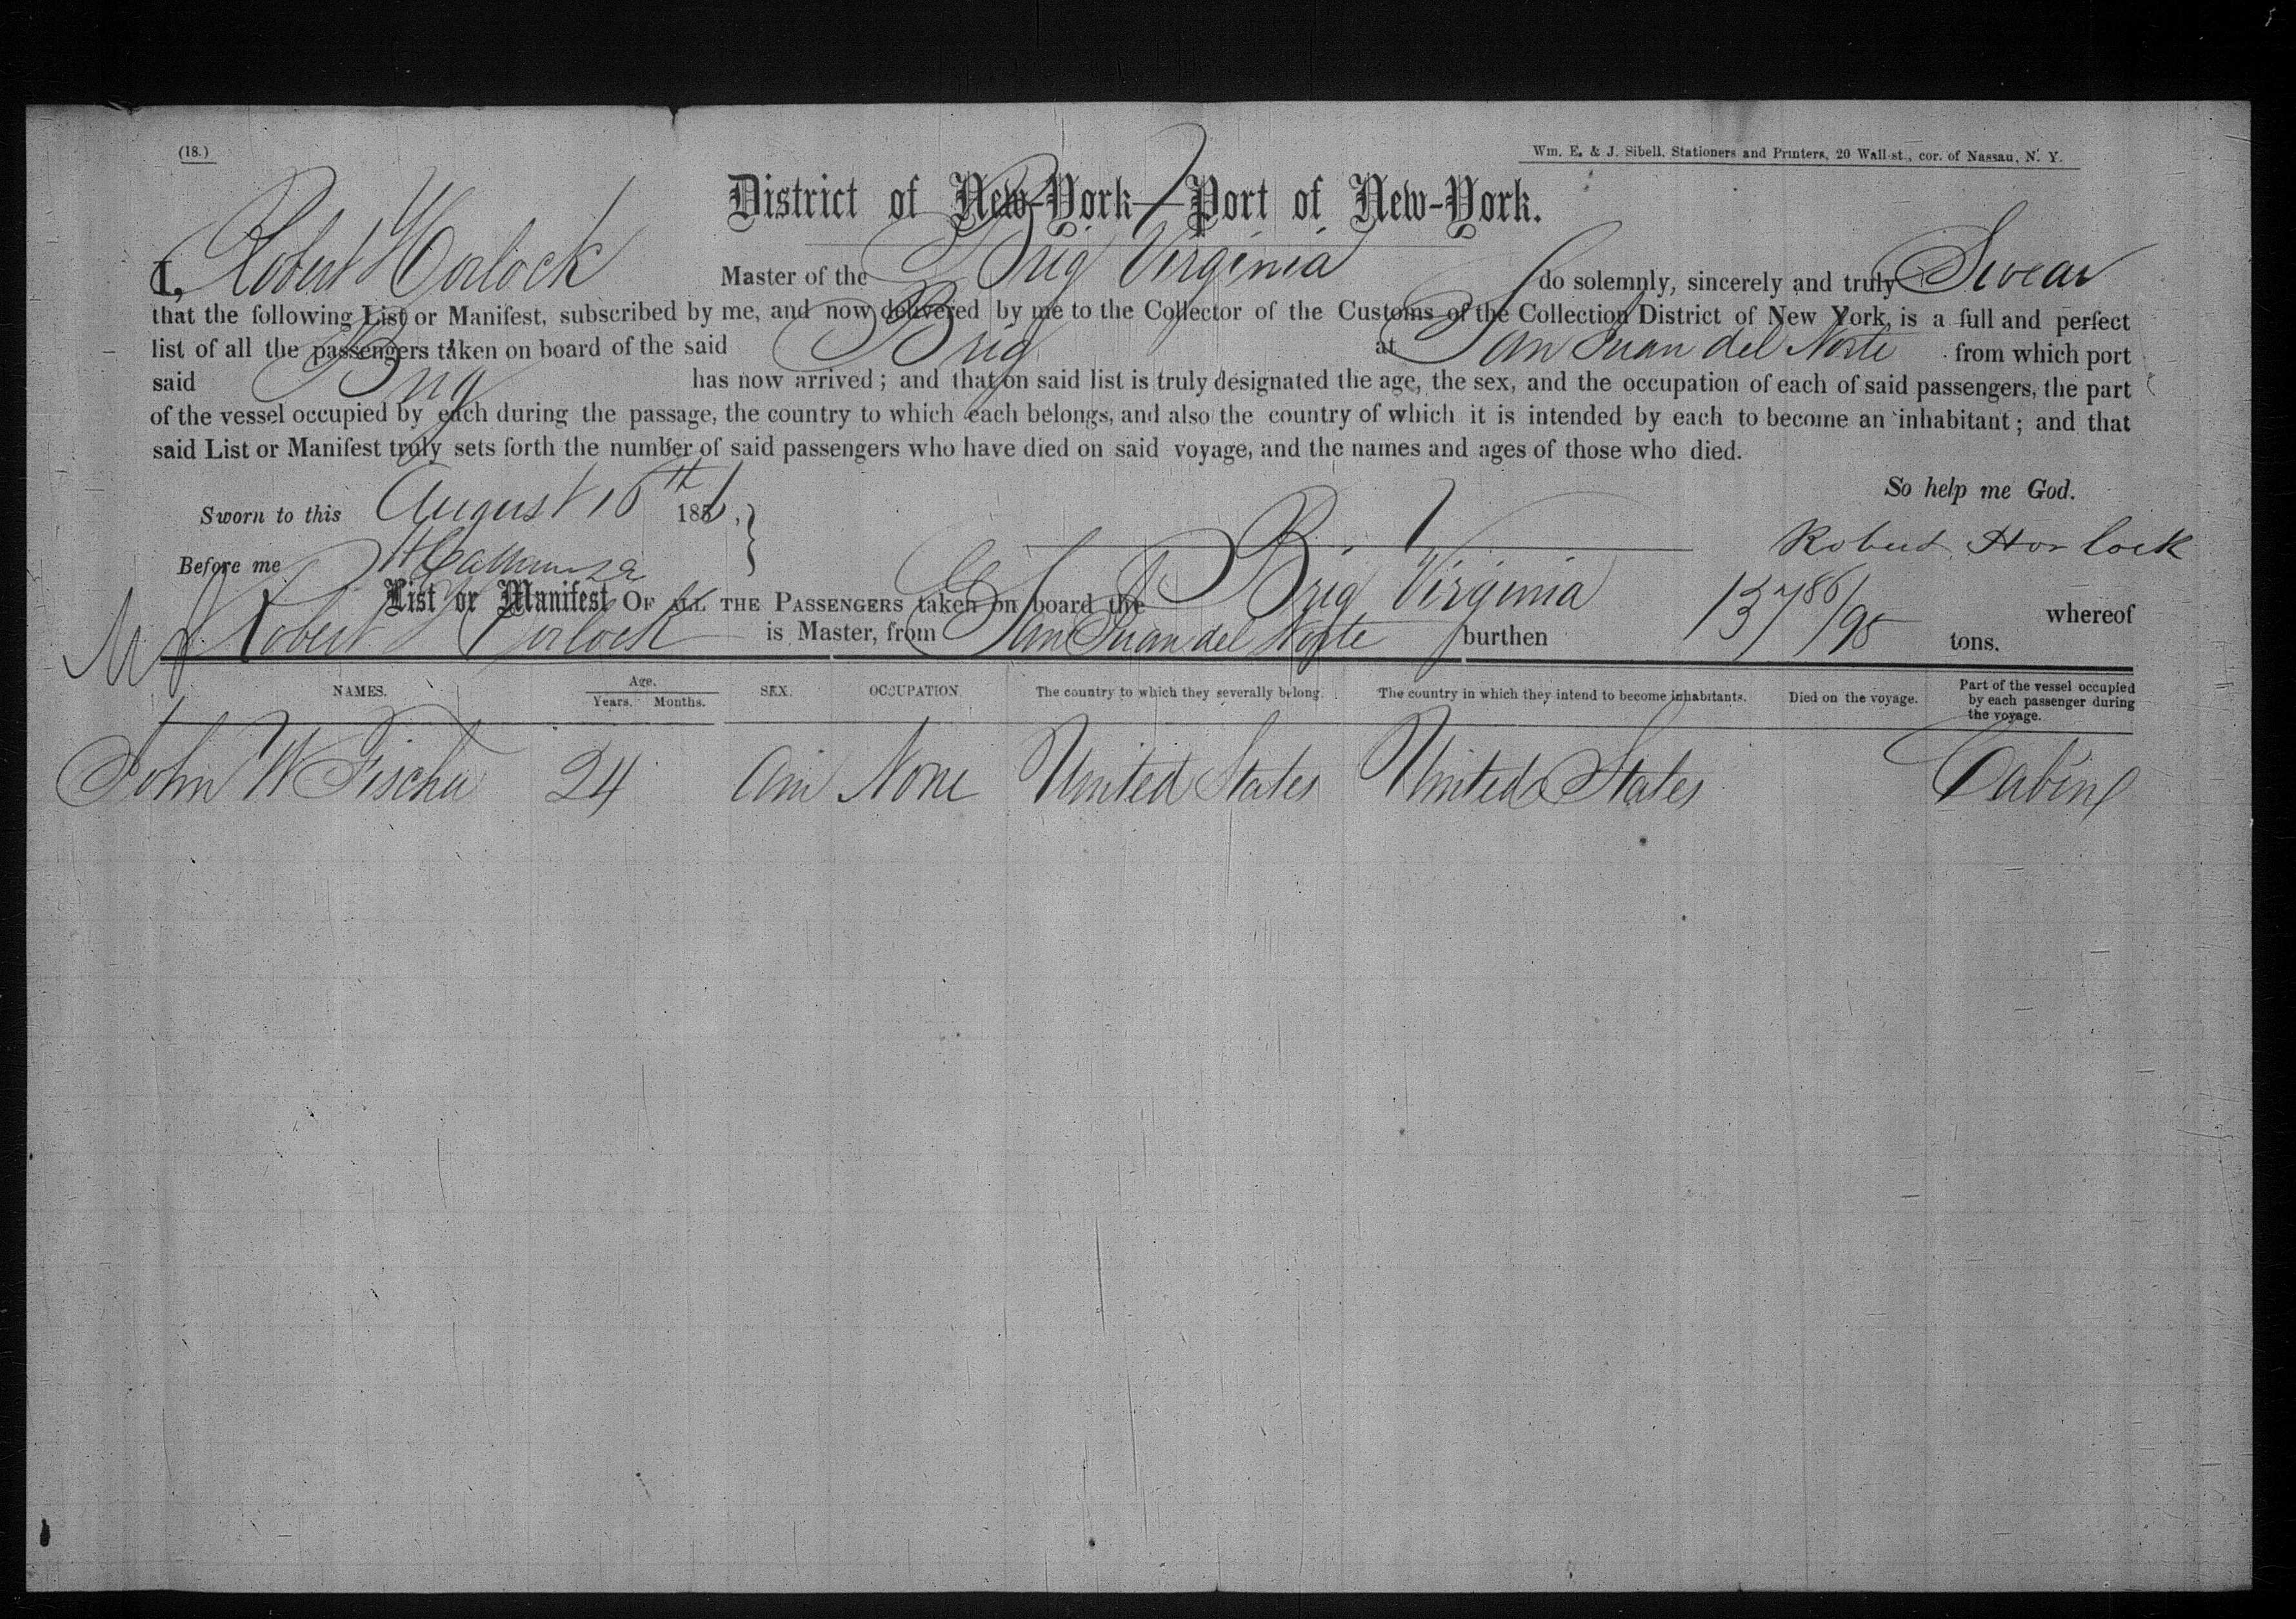 (18.)
Wm. E. & J. Sibell, Stationers and Printers, 20 Wall-st., cor. of Nassau, N. Y.
District of New-York—Port of New-York.
I, Robert Horlock Master of the Brig Virginia do solemnly, sincerely and truly Swear
that the following List or Manifest, subscribed by me, and now delivered by me to the Collector of the Customs of the Collection District of New York, is a full and perfect
list of all the passengers taken on board of the said Brig at San Juan del Norte from which port
said Brig has now arrived; and that on said list is truly designated the age, the sex, and the occupation of each of said passengers, the part
of the vessel occupied by each during the passage, the country to which each belongs, and also the country of which it is intended by each to become an inhabitant; and that
said List or Manifest truly sets forth the number of said passengers who have died on said voyage, and the names and ages of those who died.
So help me God.
Sworn to this August 16th 185
Robert Horlock
Before me
List or Manifest OF ALL THE PASSENGERS taken on board the Brig Virginia whereof
Robert Horlock is Master, from San Juan del Norte burthen 137 86/95 tons.
NAMES. Age. Years. Months. SEX. OCCUPATION. The country to which they severally belong. The country in which they intend to become inhabitants. Died on the voyage. Part of the vessel occupied by each passenger during the voyage.
John W Fischer 24 None United States United States Cabin